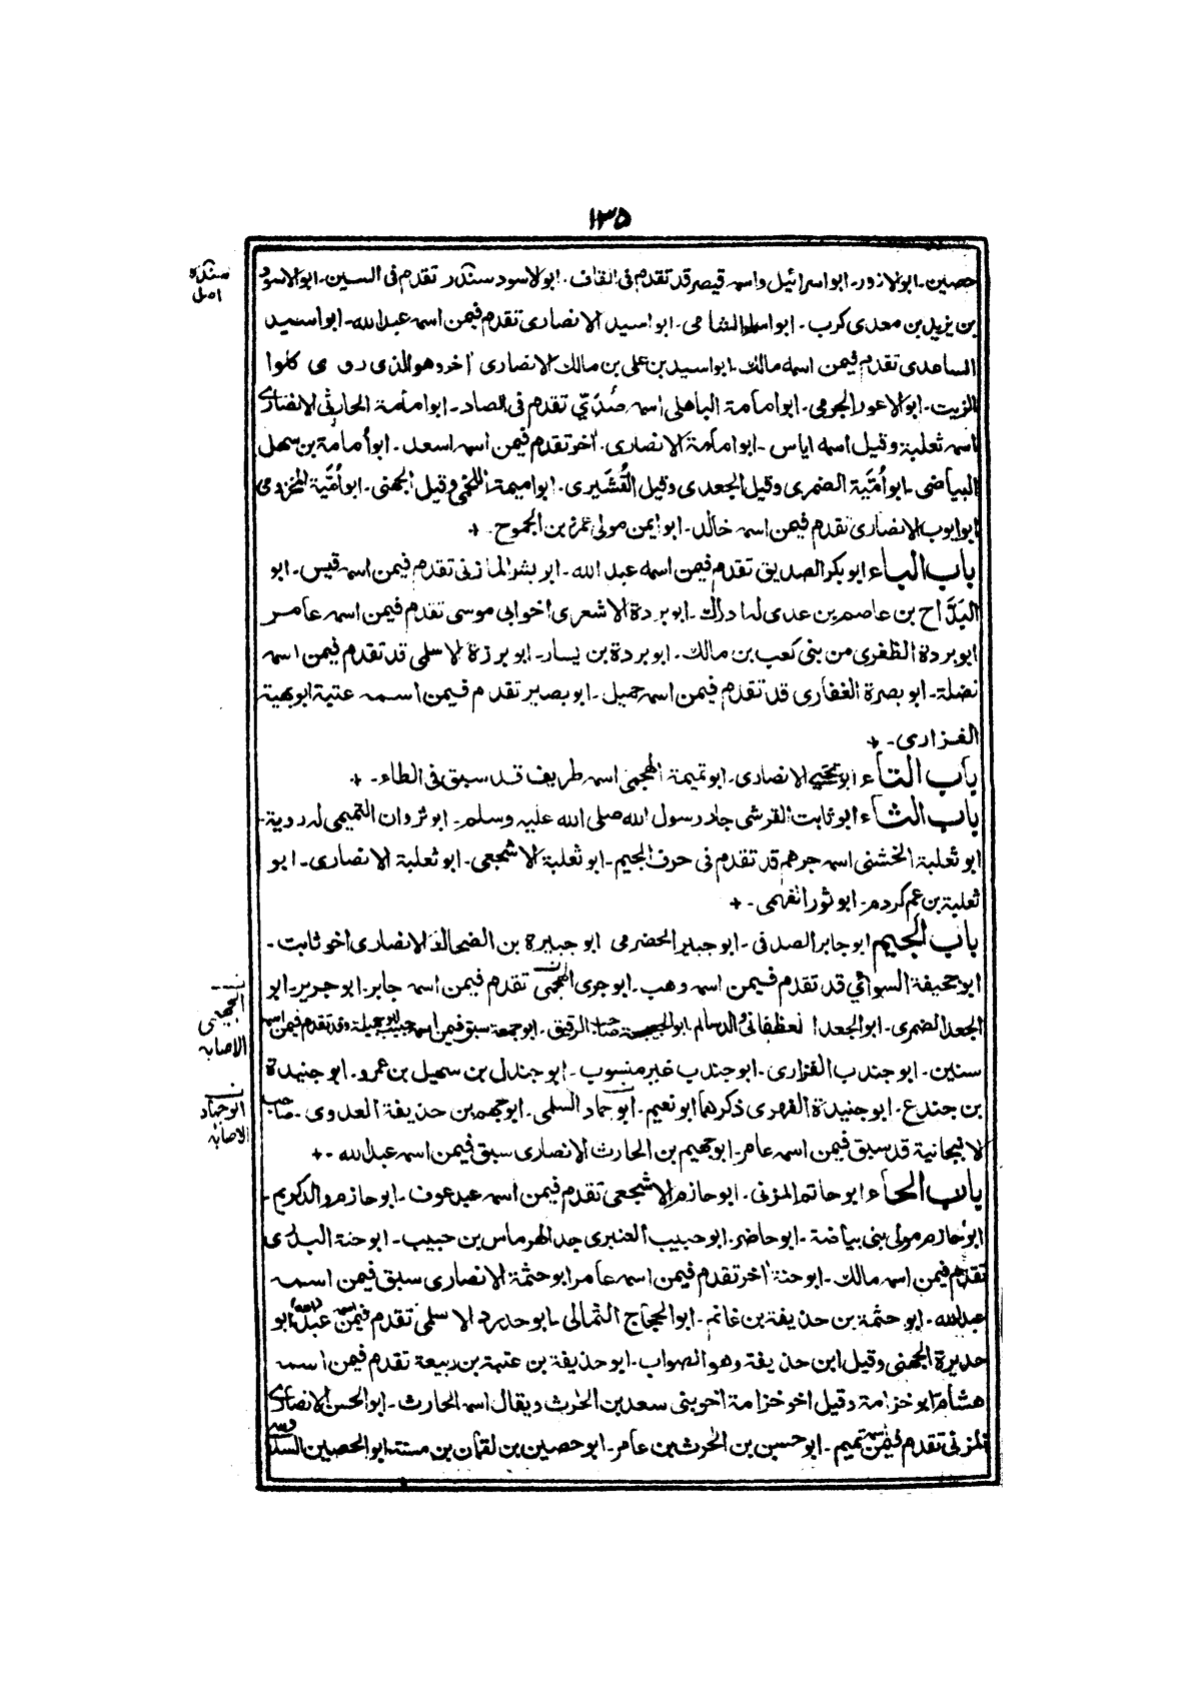 ١٣٥
حصين۔ ابوالازور۔ ابو اسرائيل واسمه قيصر قد تقدم فى القاف۔ ابوالاسود سندر تقدم فى السين۔ ابوالاسود
بن يزيد بن معدى كرب۔ ابو الشامى۔ ابو اسيد الانصارى تقدم فيمن اسمه عبدالله۔ ابو اسيد
الساعدى تقدم فيمن اسمه مالك۔ ابو اسيد بن على بن مالك الانصارى آخر وهو الذى روى كلوا
الزيت۔ ابوالاعور الجرمى۔ ابو امامة الباهلى اسمه صُدَيّ تقدم فى الصاد۔ ابو امامة الحارثى الانصارى
اسمه ثعلبة وقيل اسمه اياس۔ ابو امامة الانصارى آخر تقدم فيمن اسمه اسعد۔ ابو أمامة بن سهل
البياضى۔ ابو أُمَيَّة الضمرى وقيل الجعدى وقيل القُشَيرى۔ ابو اميمة اللخمى وقيل الجهنى۔ ابو أُمَيَّة المخزومى
ابو ايوب الانصارى تقدم فيمن اسمه خالد۔ ابو ايمن مولى عمرو بن الجموح۔
باب الباء ابو بكر الصديق تقدم فيمن اسمه عبد الله۔ ابو بشر المازنى تقدم فيمن اسمه قيس۔ ابو
البَدَّاح بن عاصم بن عدى له ادراك۔ ابو بردة الاشعرى اخو ابى موسى تقدم فيمن اسمه عامر
ابو بردة الظفرى من بنى كعب بن مالك۔ ابو بردة بن يسار۔ ابو برزة الاسلمى قد تقدم فيمن اسمه
نضلة۔ ابو بصرة الغفارى قد تقدم فيمن اسمه جميل۔ ابو بصير تقدم فيمن اسمه عتبة ابو بهية
الفزارى۔
باب التاء ابو تحيي الانصارى۔ ابو تميمة الهجيمى اسمه طريف قد سبق فى الطاء۔
باب الثاء ابو ثابت القرشى جار رسول الله صلى الله عليه وسلم۔ ابو ثروان التميمى له روية۔
ابو ثعلبة الخشنى اسمه جرهم قد تقدم فى حرف الجيم۔ ابو ثعلبة الاشجعى۔ ابو ثعلبة الانصارى۔ ابو
ثعلبة بن عم كردم۔ ابو ثور الفهمى۔
باب الجيم ابو جابر الصدفى۔ ابو جبير الحضرمى ابو جبيرة بن الضحاك الانصارى اخو ثابت۔
ابو جحيفة السوائي قد تقدم فيمن اسمه وهب۔ ابو جرى الهجيمى تقدم فيمن اسمه جابر۔ ابو جرير۔ ابو
الجعد الضمرى۔ ابو الجعد الغطفانى والد سالم صاحب الرقيق۔ ابو جمعة سبق فيمن اسمه حبيب ابو جميلة وقد تقدم فيمن اسمه
سنين۔ ابو جندب الفزارى۔ ابو جندب غير منسوب۔ ابو جندل بن سهيل بن عمرو۔ ابو جنيدة
بن جندع۔ ابو جنيدة الفهرى ذكرهما ابو نعيم۔ ابو جماد السلمى۔ ابو جهم بن حذيفة العدوى۔ صاحب
الانبجانية قد سبق فيمن اسمه عامر۔ ابو جهيم بن الحارث الانصارى سبق فيمن اسمه عبدالله۔
باب الحاء ابو حاتم المزنى۔ ابو حازم الاشجعى تقدم فيمن اسمه عبد عوف۔ ابو حازم والد كريم۔
ابو حازم مولى بنى بياضة۔ ابو حاضر۔ ابو حبيب العنبرى جد الهرماس بن حبيب۔ ابو حنة البدرى
تقدم فيمن اسمه مالك۔ ابو حنة آخر تقدم فيمن اسمه عامر ابو حثمة الانصارى سبق فيمن اسمه
عبدالله۔ ابو حثمة بن حذيفة بن غانم۔ ابو الحجاج الثمالى۔ ابو حدرد الاسلمى تقدم فيمن اسمه عبدالله ابو
حديرة الجهنى وقيل ابن حذيفة وهو الصواب۔ ابو حذيفة بن عتبة بن ربيعة تقدم فيمن اسمه
هشام ابو خزامة وقيل اخو خزامة اخو بنى سعد بن الحرث ويقال اسمه الحارث۔ ابو الحسن الانصارى
المزنى تقدم فيمن اسمه تميم۔ ابو حسن بن الحرث بن عامر۔ ابو حصين بن لقمان بن ابو الحصين السدوسى
سندره
اصل
الجهيمى
الاصابه
ابو جماد
الاصابه